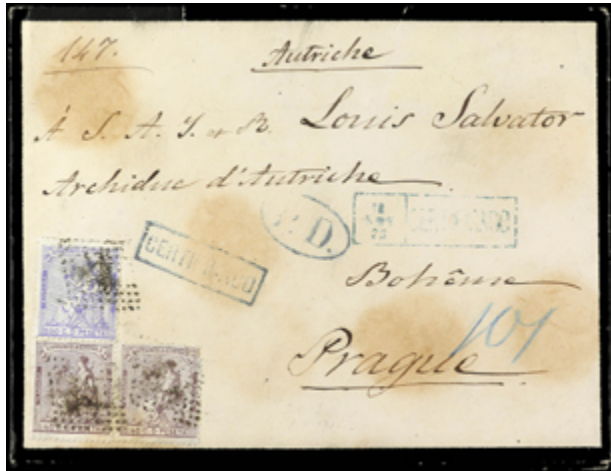 147.
Autriche
À S. A. I. et R. Louis Salvator
Archiduc d'Autriche
P. D.
CERTIFICADO
CERTIFICADO
Bohême
101
Prague